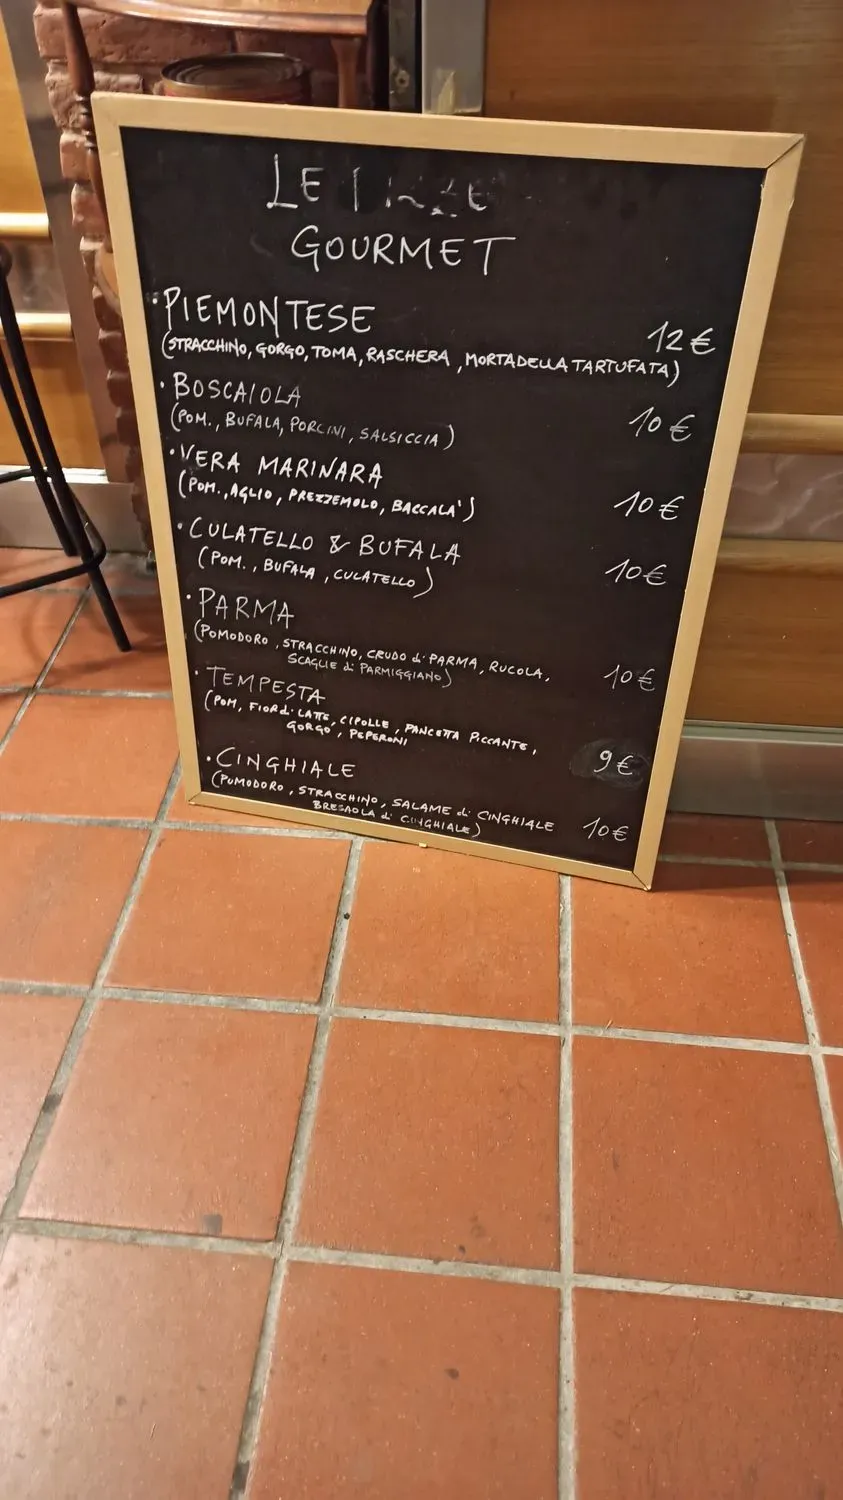 LE
GOURMET
·PIEMONTESE 12€
(STRACCHINO, GORGO, TOMA, RASCHERA, MORTADELLA TARTUFATA)
·BOSCAIOLA
(POM., BUFALA, PORCINI, SALSICCIA) 10€
·VERA MARINARA
(POM., AGLIO, PREZZEMOLO, BACCALA') 10€
·CULATELLO & BUFALA
(POM., BUFALA, CULATELLO) 10€
·PARMA
(POMODORO, STRACCHINO, CRUDO di PARMA, RUCOLA,
SCAGLIE di PARMIGGIANO) 10€
·TEMPESTA
(POM, FIOR di LATTE, CIPOLLE, PANCETTA PICCANTE,
GORGO', PEPERONI 9€
·CINGHIALE
(POMODORO, STRACCHINO, SALAME di CINGHIALE
BRESAOLA di CINGHIALE) 10€